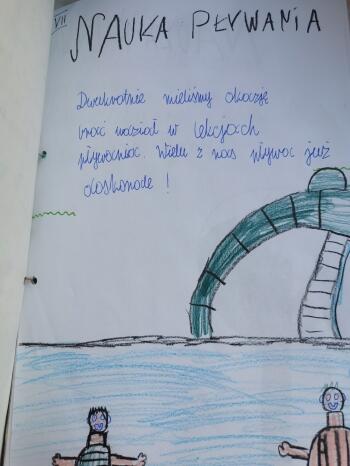 VII
NAUKA PŁYWANIA
Dwukrotnie mieliśmy okazję
brać udział w lekcjach
pływania. Wielu z nas pływa już
doskonale!